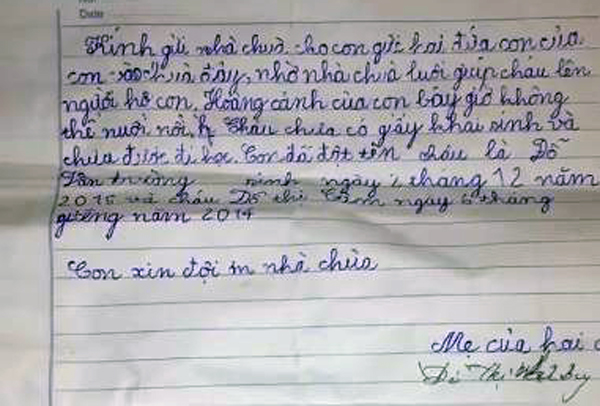 Date
Kính gửi nhà chùa cho con gửi hai đứa con của
con vào chùa đây, nhờ nhà chùa luôi giúp cháu lên
người hộ con. Hoàng cảnh của con bây giờ không
thể nuôi nổi. Cháu chưa có giấy khai sinh và
chưa được đi học. Con đã đặt tên cháu là Đỗ
Văn trường sinh ngày 2 tháng 12 năm
và cháu Đỗ thị ngày 6 tháng
giêng năm 2014
Con xin đội ơn nhà chùa
Mẹ của hai c
Thị